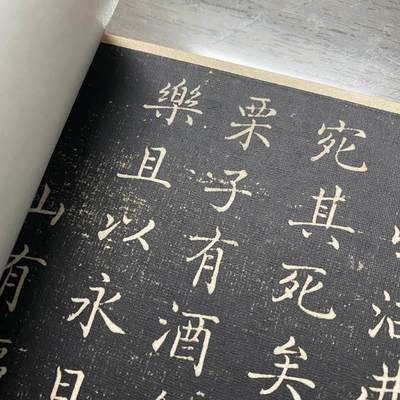 宛其死矣
栗子有酒
樂且以永
山有